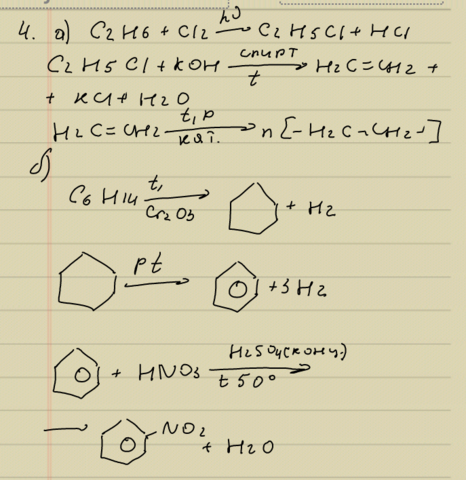 4. а) C2H6 + Cl2 hν→ C2H5Cl + HCl
C2H5Cl + KOH спирт/t→ H2C=CH2 +
+ KCl + H2O
H2C=CH2 t,p/кат.→ n[-H2C-CH2-]
б)
C6H14 t,/Cr2O3→ + H2
pt→ +3H2
+ HNO3 H2SO4(конц.)/t 50°→
→ NO2 + H2O